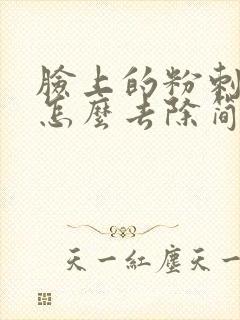 臉上的粉刺
怎麼去除简
天一紅塵天一